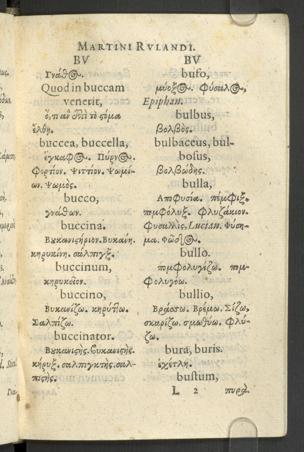 MARTINI RVLANDI.
BV
Γνάθος.
Quod in buccam
venerit,
ὅ, τι ἂν ἐπὶ τὸ στόμα
ἔλθῃ.
buccea, buccella,
ἔγκαφος. Πύρνος.
Φορτίον. Ψιττίον. Ψωμίον. Ψωμός.
bucco,
γνάθων.
buccina.
Βυκανιστήριον. Βυκάνη.
κηρυκίνη. σάλπιγξ.
buccinum,
κηρυκεῖον.
buccino,
Βυκανίζω. κηρύττω.
Σαλπίζω.
buccinator.
Βυκανιστής.
κῆρυξ. σαλπιγκτής. σαλπιστής.
BV
bufo,
μύοξος. Φύσαλος,
Epiphan.
bulbus,
βολβός.
bulbaceus, bulbosus,
βολβώδης.
bulla,
πέμφιξ.
πομφόλυξ. Φλυζάκιον.
Φυσαλλίς, Lucian. Φύσημα.
bullo.
πομφολυγίζω. πομφολυγόω.
bullio,
Βράσσω. Βρέμω. Σίζω,
Φλύζω.
bura, buris.
ἐχέτλη.
bustum,
L 2